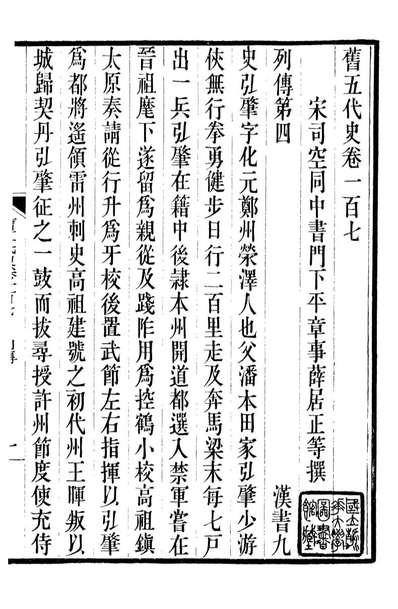 舊五代史卷一百七
宋司空同中書門下平章事薛居正等撰
列傳第四 漢書九
史弘肇字化元鄭州滎澤人也父潘本田家弘肇少游
俠無行拳勇健步日行二百里走及奔馬梁末每七戸
出一兵弘肇在籍中後隷本州開道都選入禁軍嘗在
晉祖麾下遂留爲親從及踐阼用爲控鶴小校高祖鎮
太原奏請從行升爲牙校後置武節左右指揮以弘肇
爲都將遙領雷州刺史高祖建號之初代州王暉叛以
城歸契丹弘肇征之一鼓而拔尋授許州節度使充侍